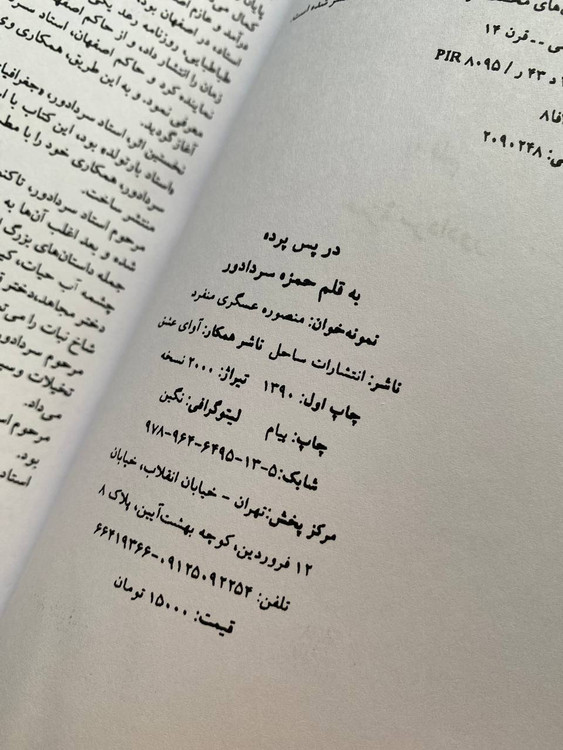 سی -- قرن ۱۴
د ۴۳ ر / PIR ۸۰۹۵
۲۰۹۰۲۴۸
در پس پرده
به قلم حمزه سردادور
نمونه‌خوان: منصوره عسگری منفرد
ناشر: انتشارات ساحل ناشر همکار: آوای عشق
چاپ اول: ۱۳۹۰ تیراژ: ۲۰۰۰ نسخه
چاپ: پیام لیتوگرافی: نگین
شابک: ۵-۱۳-۶۴۹۵-۹۶۴-۹۷۸
مرکز پخش: تهران - خیابان انقلاب، خیابان
۱۲ فروردین، کوچه بهشت‌آیین، پلاک ۸
تلفن: ۰۹۱۲۵۰۹۲۲۵۴-۶۶۴۱۹۳۶۶
قیمت: ۱۵۰۰۰ تومان
پایان
درآمد و عازم اصفهان
استاد، در اصفهان بود
طباطبایی، روزنامه رعد
زمان را انتشار داده و از حاکم اصفهان
نماینده کرد و حاکم اصفهان، استاد
معرفی نمود. و به این طریق، همکاری وی
آغاز گردید.
نخستین اثر، استاد سردادور، «جغرافیا
«استاد بارتولد» بود، این کتاب با
سردادور، همکاری خود را با
منتشر ساخت.
مرحوم استاد سردادور، تاکنون
شده و بعد اغلب آن‌ها به
جمله داستان‌های بزرگ
چشمه آب حیات،
دختر مجاهد، دختر
شاخ نبات را می
مرحوم سردادور
تخیلات و
می‌داد.
مرحوم
بود.
استاد